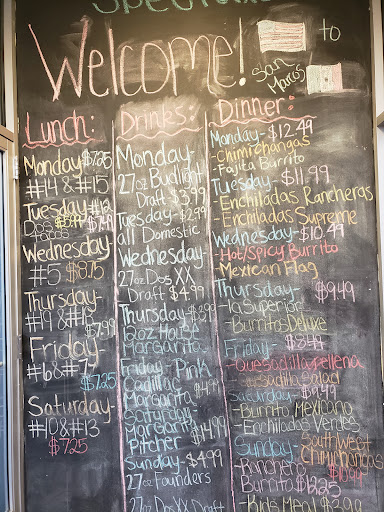 Specials
Welcome!
to
San
Marcos
Lunch:
Monday $7.25
#14 & #15
Tuesday #12
Wednesday
#5 $8.75
Thursday-
$7.99
Friday-
#6 & #7
$7.25
Saturday-
#10 & #13
$7.25
Drinks:
Monday-
27oz Budlight
Draft $3.99
Tuesday-$2.99
all Domestic
Wednesday-
27oz Dos XX
Draft $4.99
Thursday-$2.99
12oz House
Margarita
Friday- Pink
Cadillac $4.99
Margarita
Saturday-
Margarita
Pitcher $14.99
Sunday- $4.99
27oz Founders
27oz DosXX Draft
Dinner:
Monday- $12.49
-Chimichangas
-Fajita Burrito
Tuesday- $11.99
-Enchiladas Rancheras
-Enchiladas Supreme
Wednesday-$10.49
-Hot/Spicy Burrito
-Mexican Flag
Thursday- $9.49
-La Superior
-Burritos Deluxe
Friday-
-Quesadilla Rellena
-Quesadilla Salad
Saturday- $9.49
-Burrito Mexicano
-Enchiladas Verdes
Sunday- Southwest
Chimichangas
-Ranchero
Burrito $12.25
-Kid's Meal $2.99